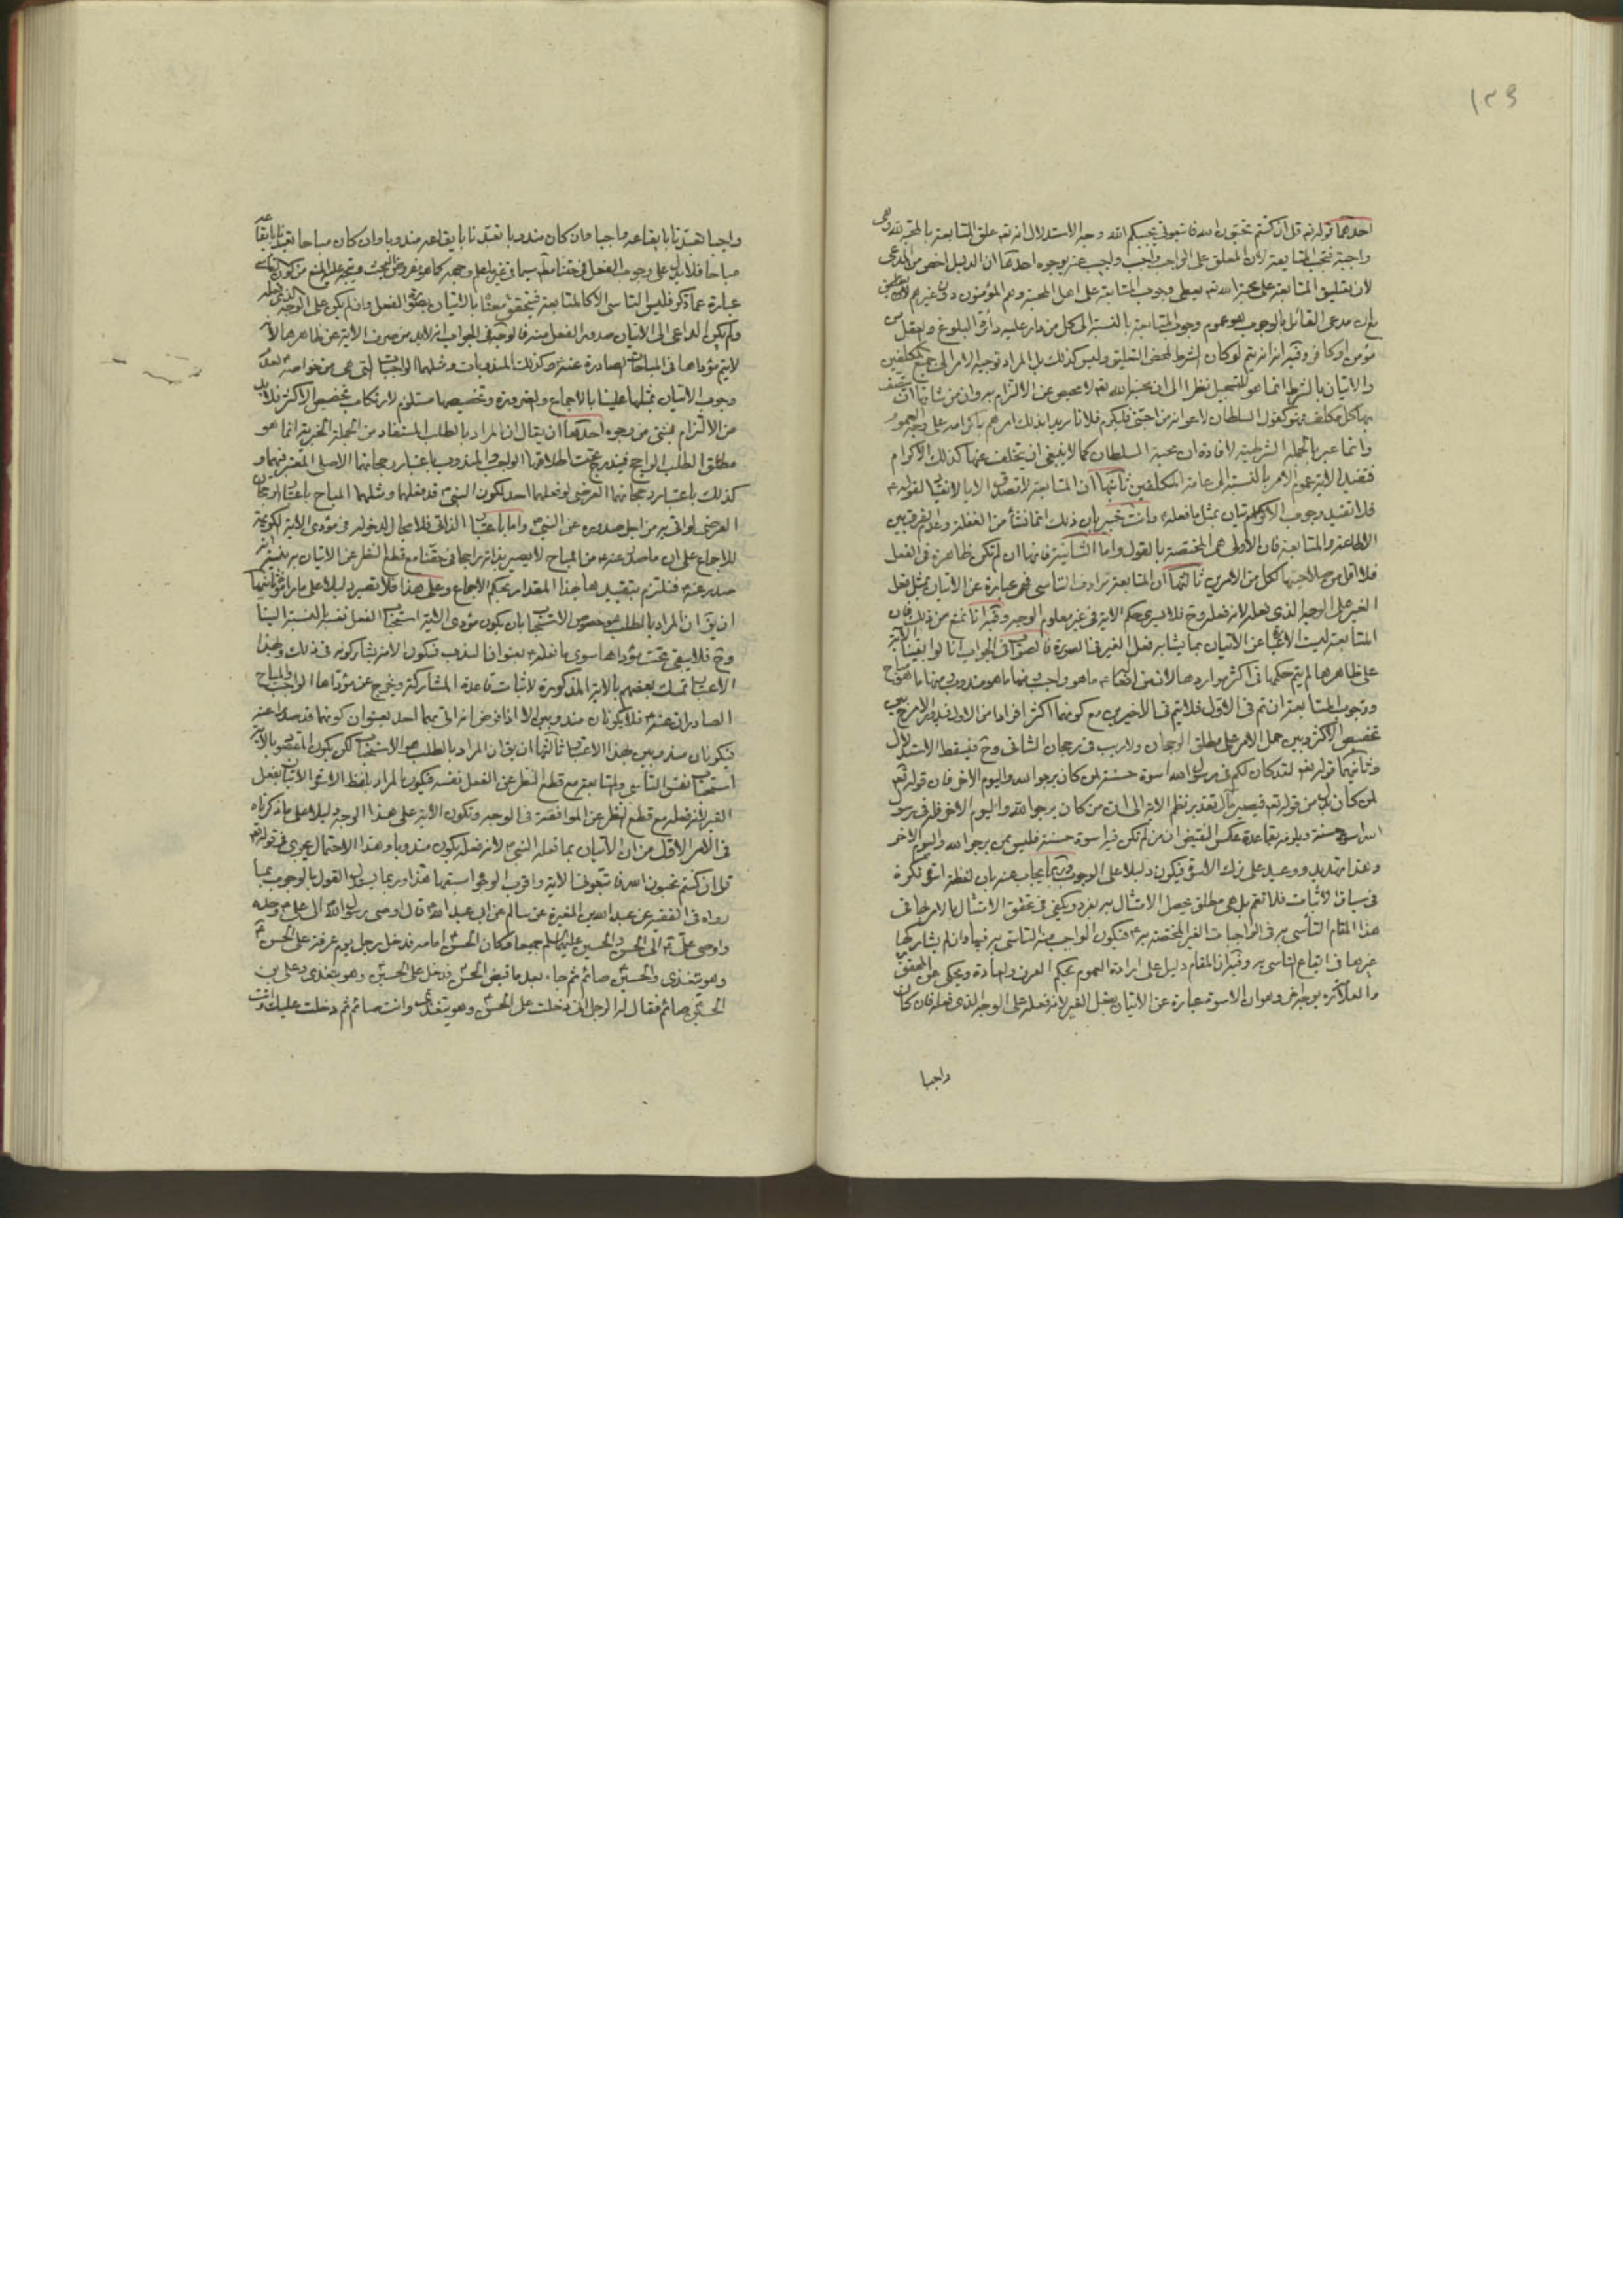 ١٣٩
احدهما قوله تع قل ان كنتم تحبون الله فاتبعوني يحببكم الله وجه الاستدلال انه تع علق المتابعة بالمحبة لله وهي
واجبة فتجب المتابعة لان المعلق على الواجب واجب واجيب عنه بوجوه احدها ان الدليل اخص من المدعى
لان تعليق المتابعة على محبة الله تع يعطى وجوب المتابعة على اهل المحبة وهم المؤمنون دون غيرهم
مع ان مدعى القائل بالوجوب هو عموم وجوب المتابعة بالنسبة الى كل من دار عليه دائرة البلوغ والعقل من
مؤمن او كافر وفيه انه انما يتم لو كان الشرط لمحض التعليق وليس كذلك بل المراد توجيه الامر الى جميع المكلفين
والاتيان بالشرط انما هو للتسجيل نظرا الى ان محبة الله تع لا محيص عن الالتزام به وان من شانها ان يتصف
بها كل مكلف فهو كقول السلطان لاعوانه من احبني فليكرم فلانا يريد بذلك امرهم باكرامه على وجه العموم
وانما عبر بالجملة الشرطية لافادة ان محبة السلطان كما لا ينبغي ان يتخلف عنها كذلك الاكرام
فتفيد الاية عموم الامر بالنسبة الى عامة المكلفين ثانيها ان المتابعة لا تصدق الا بالاتباع لقوله ع
فلا تفيد وجوب الاتيان بمثل ما فعله ع وانت خبير بان ذلك انما نشأ من الغفلة وعدم الفرق بين
الاطاعة والمتابعة فان الاولى هي المختصة بالقول واما الثانية فانها ان لم تكن ظاهرة في الفعل
فلا اقل من صلاحيتها لكل من الامرين ثالثها ان المتابعة ترادف التاسي فهي عبارة عن الاتيان بمثل فعل
الغير على الوجه الذي فعله لانه فعله وح فلا يسرى حكم الاية في غير معلوم الوجه وفيه انا نمنع من ذلك فان
المتابعة ليست الا عبارة عن الاتيان بما يشابه فعل الغير في الصورة فالصواب في الجواب انا لو ابقينا الاية
على ظاهرها لم يتم حكمها في اكثر مواردها لان من افعاله ع ما هو واجب ومنها ما هو مندوب ومنها ما هو مباح
ووجوب المتابعة ان تم في الاول فلا يتم في الاخيرين مع كونهما اكثر افرادا من الاول فيدور الامر بين
تخصيص الاكثر وبين حمل الامر على مطلق الرجحان ولا ريب في رجحان الثاني وح فيسقط الاستدلال
وثانيهما قوله تع لقد كان لكم في رسول الله اسوة حسنة لمن كان يرجو الله واليوم الاخر فان قوله تع
لمن كان بدل من قوله تع فيصير مآل تقدير نظم الاية الى ان من كان يرجو الله واليوم الاخر فله في رسول
الله اسوة حسنة ويلزمه بقاعدة عكس النقيض ان من لم تكن فيه اسوة حسنة فليس ممن يرجو الله واليوم الاخر
وهذا تهديد ووعيد على ترك الاسوة فيكون دليلا على الوجوب وربما يجاب عنه بان لفظة اسوة نكرة
في سياق الاثبات فلا تعم بل هي مطلق يحصل الامتثال به بفرد ويكفي في تحقق الامتثال بالامر بها في
هذا المقام التأسي به في الواجبات الغير المختصة به ع فيكون الواجب منه التاسي به فيها وان لم يشاركها
غيرها في ايقاع التاسي به وفيه ان المقام دليل على ارادة العموم بحكم العرف والعادة ويحكى عن المحقق
والعلامة ره بوجه اخر وهو ان الاسوة عبارة عن الاتيان بفعل الغير لانه فعله على الوجه الذي فعله فان كان
واجبا
واجبا تعبدنا بايقاعه واجبا وان كان مندوبا تعبدنا بايقاعه مندوبا وان كان مباحا تعبدنا بايقاعه
مباحا فلا يدل على وجوب الفعل في حقنا مط سيما في غير المعلوم وجهه كما هو مفروض البحث ويتجه عليه المنع من كون التاسي
عبارة عما ذكر فليس التاسي الا كالمتابعة فيتحقق معنا بالاتيان بصورة الفعل وان لم يكن على الوجه الذي فعله
ولم يكن الداعي الى الاتيان صدور الفعل منه فالوجه في الجواب انه لا بد من صرف الاية عن ظاهرها لانه
لا يتم مؤداها في المباحات الصادرة عنه ع وكذلك المندوبات ومثلهما الواجبات التي هي من خواصه ع لعدم
وجوب الاتيان بمثلها علينا بالاجماع والضرورة وتخصيصها مستلزم لارتكاب تخصيص الاكثر فلا بد
من الالتزام بشئ من وجوه احدها ان يقال ان المراد بالطلب المستفاد من الجملة الخبرية انما هو
مطلق الطلب الراجح فيندرج تحت اطلاقها الواجب والمندوب باعتبار رجحانهما الاصلي المعتبر فيهما و
كذلك باعتبار رجحانهما العرضي لو فعلهما احد لكون النبي ع قد فعلهما ومثلهما المباح باعتبار الرجحان
العرضي لو اتى به من اجل صدوره عن النبي ع واما باعتبار الذاتي فلا مجال لدخوله في مؤدى الاية
للاجماع على ان ما صدر عنه ع من المباح لا يصير بذاته راجحا في حقنا مع قطع النظر عن الاتيان به
صدر عنه ع فنلتزم بتقييدها بهذا المقدار بحكم الاجماع وعلى هذا فلا تصير دليلا على ما راموه ثانيها
ان يق ان المراد بالطلب هو خصوص الاستحباب بان يكون مؤدى الاية استحباب الفعل نفسه بالنسبة الينا
وح فلا يبقى تحت مؤداها سوى ما فعله ع بعنوان الندب فيكون الامة يشاركونه في ذلك وبهذا
الاعتبار تمسك بعضهم بالاية المذكورة لاثبات قاعدة المشاركة ويخرج عن مؤداها الواجب والمباح
الصادران عنه ع فلا يكونان مندوبين الا اذا فرض انه اتى بهما احد بعنوان كونهما قد صدرا عنه
فيكونان مندوبين بهذا الاعتبار ثالثها ان يق ان المراد بالطلب هو الاستحباب لكن يكون المقصود بالاية
استحباب نفس التاسي والمتابعة مع قطع النظر عن الفعل نفسه فيكون المراد بلفظ الاسوة الاتيان بفعل
الغير لانه فعله مع قطع النظر عن الموافقة في الوجه وتكون الاية على هذا الوجه دليلا على ما ذكرناه
في الامر الاول من ان الاتيان بما فعله النبي ع لانه فعله يكون مندوبا وهذا الاحتمال يجري في قوله تع
قل ان كنتم تحبون الله فاتبعوني الاية واقرب الوجوه اسبقها هذا وربما يستدل القول بالوجوب بما
رواه في الفقيه عن عبد الله بن المغيرة عن سالم عن ابي عبد الله ع قال اوصى رسول الله ص الى علي ع وحده
واوصى علي ع الى الحسن والحسين عليهما السلم جميعا فكان الحسن ع امامه فدخل رجل يوم عرفة على الحسن ع
وهو يتغذى والحسين ع صائم ثم جاء بعد ما قبض الحسن ع فدخل على الحسين ع وهو يتغذى وعلي بن
الحسين ع صائم فقال له الرجل اني دخلت على الحسن ع وهو يتغذى وانت صائم ثم دخلت عليك وانت